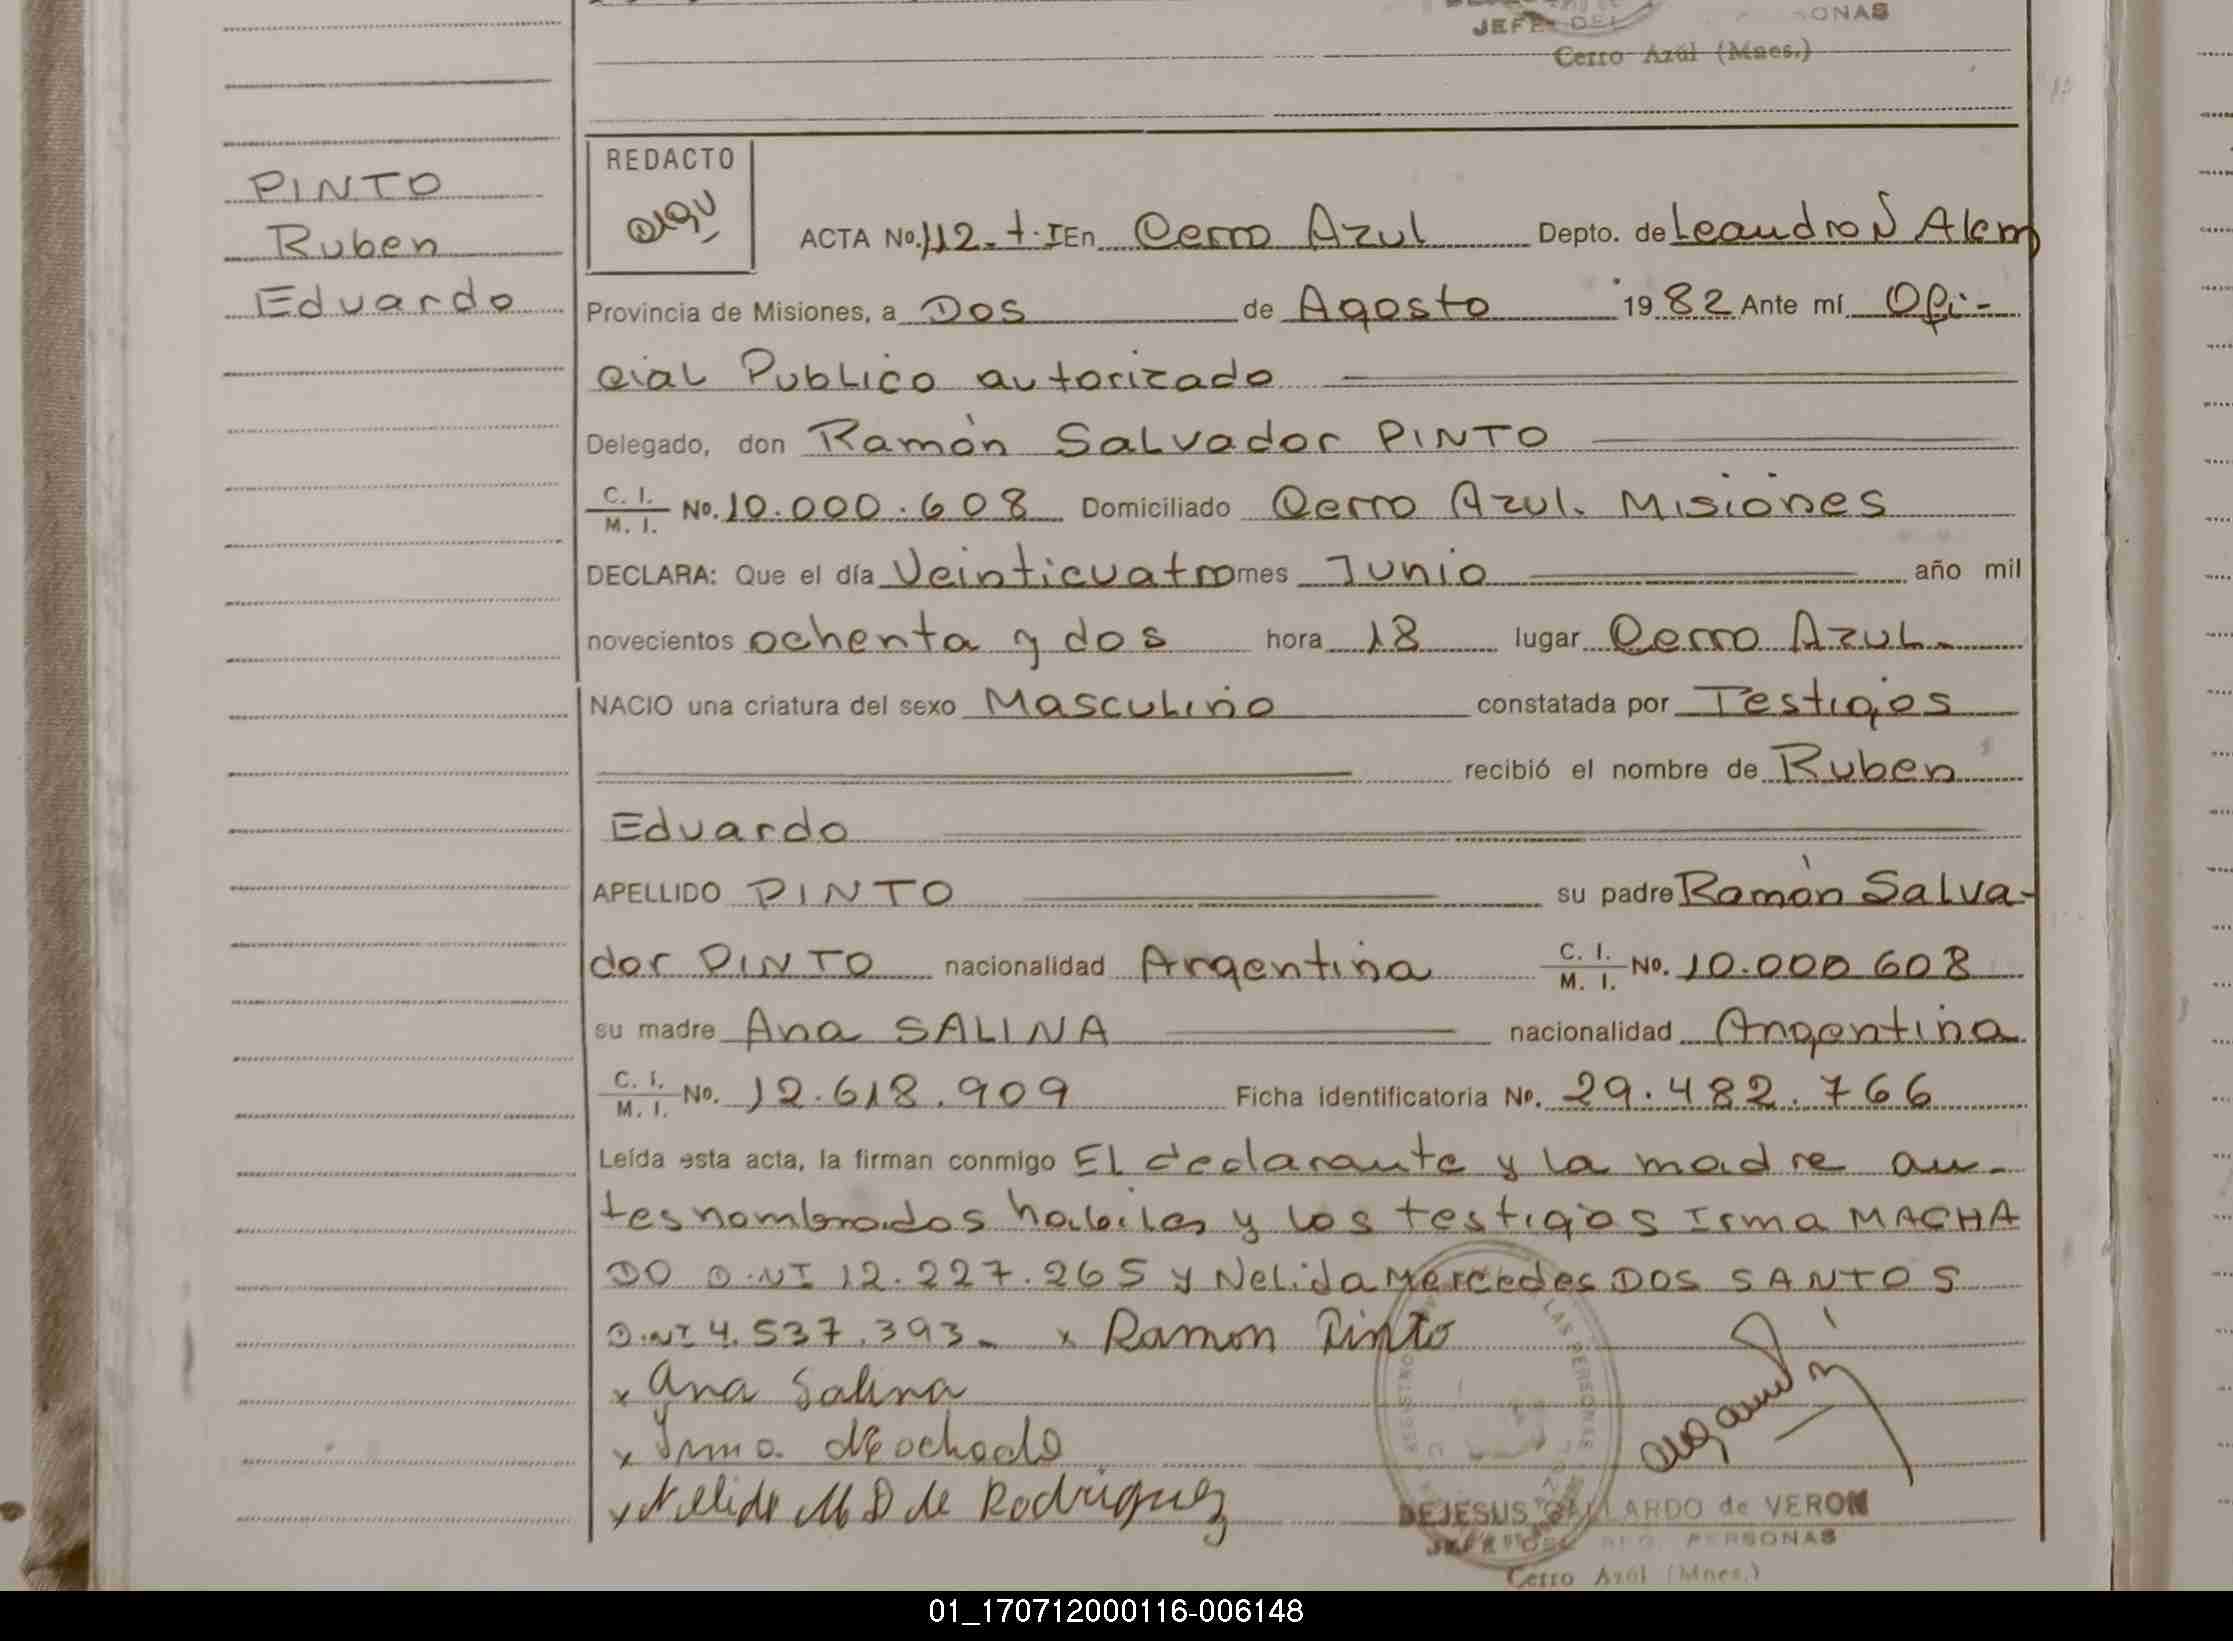 JEFE DEL ONAS
Cerro Azúl (Mnes.)
PINTO
Ruben
Eduardo
REDACTO
ACTA No. 112-t.I En Cerro Azul Depto. de Leandro N Alem
Provincia de Misiones, a Dos de Agosto 1982 Ante mí Ofi-
cial Publico autorizado
Delegado, don Ramón Salvador PINTO
C. I.
M. I. No. 10.000.608 Domiciliado Cerro Azul. Misiones
DECLARA: Que el día Veinticuatro mes Junio año mil
novecientos ochenta y dos hora 18 lugar Cerro Azul.
NACIO una criatura del sexo Masculino constatada por Testigos
recibió el nombre de Ruben
Eduardo
APELLIDO PINTO su padre Ramón Salva-
dor PINTO nacionalidad Argentina C. I.
M. I. No. 10.000 608
su madre Ana SALINA nacionalidad Argentina.
C. I.
M. I. No. 12.618.909 Ficha identificatoria No. 29.482.766
Leída esta acta, la firman conmigo El declarante y la madre an-
tes nombrados habiles y los testigos Irma MACHA
DO D.NI 12.227.265 y Nelida Mercedes DOS SANTOS
D.NI 4.537.393. x Ramon Pinto
x Ana Salina
x Irma Machado
x Nelida M D de Rodriguez
DEJESUS GALLARDO de VERON
JEFE DEL REG. PERSONAS
Cerro Azúl (Mnes.)
01_170712000116-006148